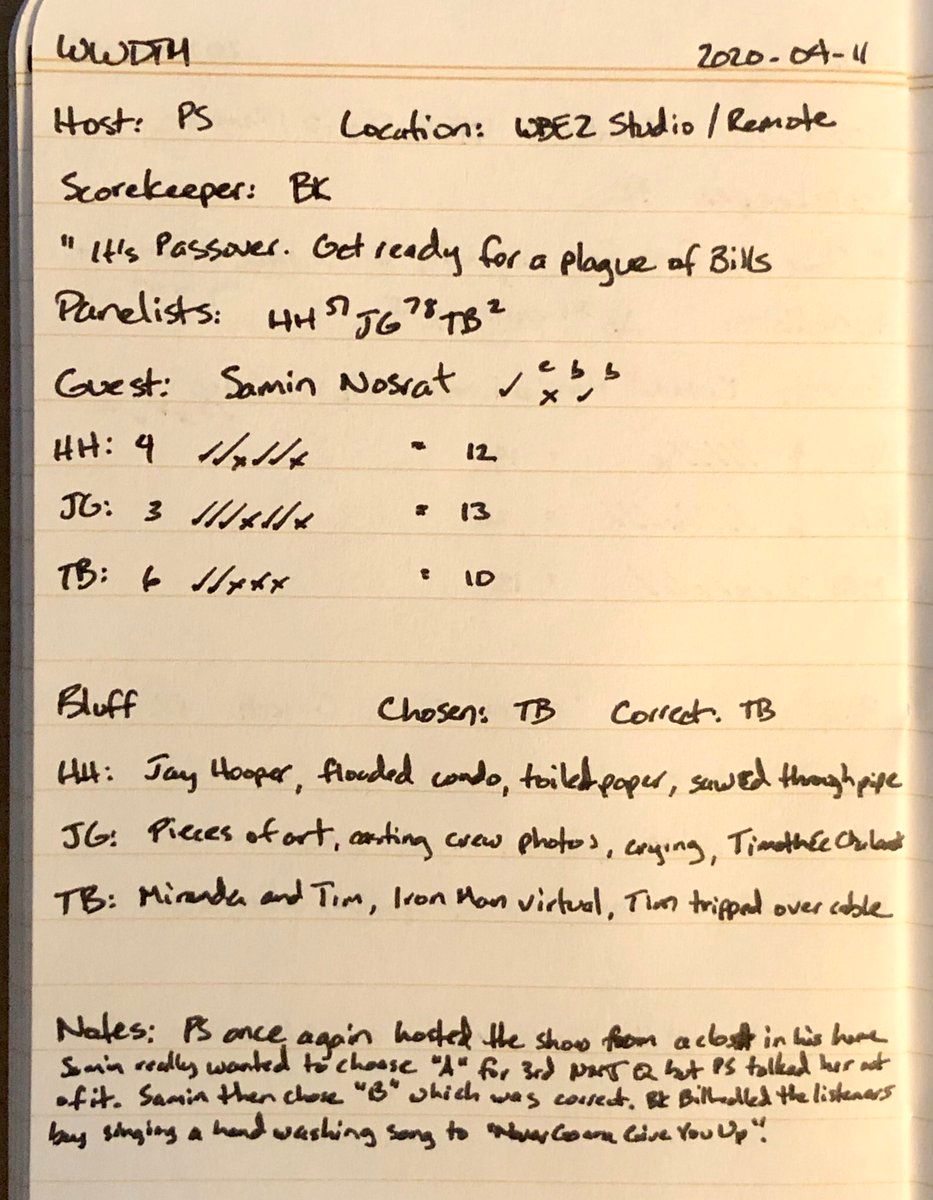 WWDTM 2020-04-11
Host: PS Location: WBEZ Studio / Remote
Scorekeeper: BK
" It's Passover. Get ready for a plague of Bills
Panelists: HH 57 JG 78 TB 2
Guest: Samin Nosrat ✓ c x b ✓ b
HH: 4 ✓✓x✓✓x = 12
JG: 3 ✓✓✓x✓✓x = 13
TB: 6 ✓✓xxx = 10
Bluff Chosen: TB Correct: TB
HH: Jay Hooper, flooded condo, toilet paper, sawed through pipe
JG: Pieces of art, casting crew photos, crying, Timothée Chalamet
TB: Miranda and Tim, Iron Man virtual, Tim tripped over cable
Notes: PS once again hosted the show from a closet in his home
Samin really wanted to choose "A" for 3rd NMJ Q but PS talked her out
of it. Samin then chose "B" which was correct. BK Billrolled the listeners
by singing a hand washing song to "Never Gonna Give You Up".